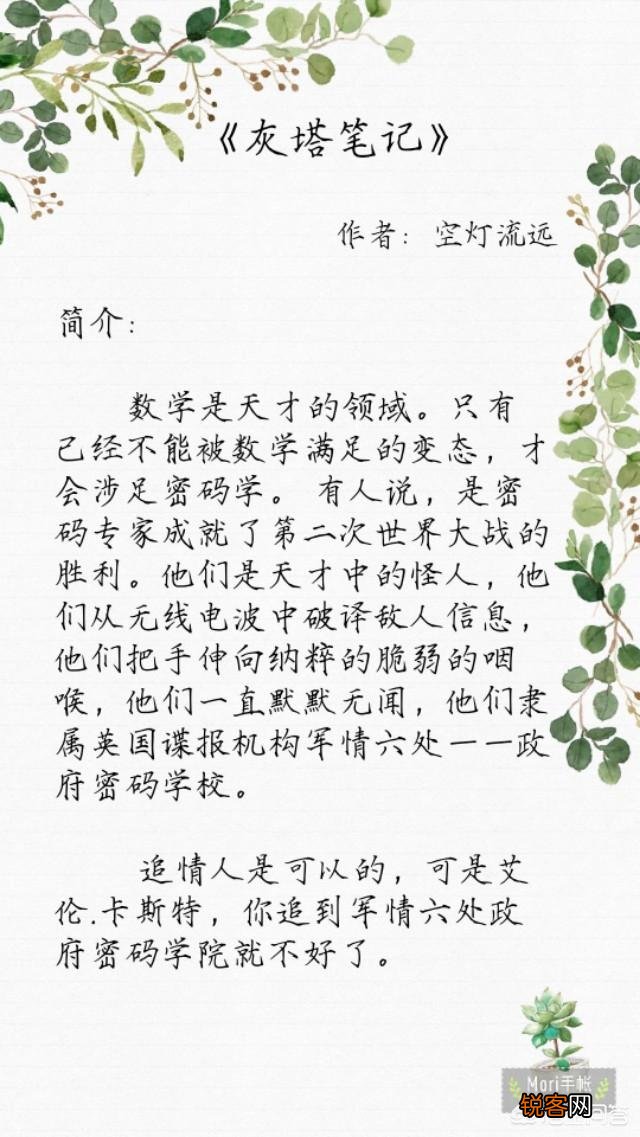 《灰塔笔记》
作者：空灯流远
简介：
数学是天才的领域。只有
己经不能被数学满足的变态，才
会涉足密码学。 有人说，是密
码专家成就了第二次世界大战的
胜利。他们是天才中的怪人，他
们从无线电波中破译敌人信息，
他们把手伸向纳粹的脆弱的咽
喉，他们一直默默无闻，他们隶
属英国谍报机构军情六处——政
府密码学校。
追情人是可以的，可是艾
伦.卡斯特，你追到军情六处政
府密码学院就不好了。
Mori手帐
锐客网